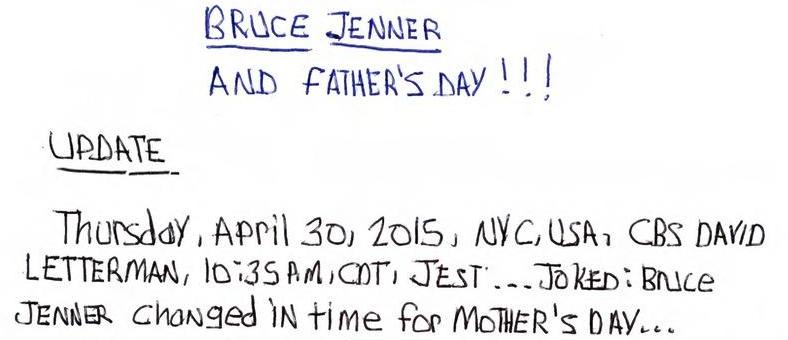 BRUCE JENNER
AND FATHER'S DAY!!!
UPDATE
Thursday, April 30, 2015, NYC, USA, CBS DAVID
LETTERMAN, 10:35 AM, CDT, JEST... JOKED: BRUCE
JENNER changed IN time for MOTHER'S DAY...